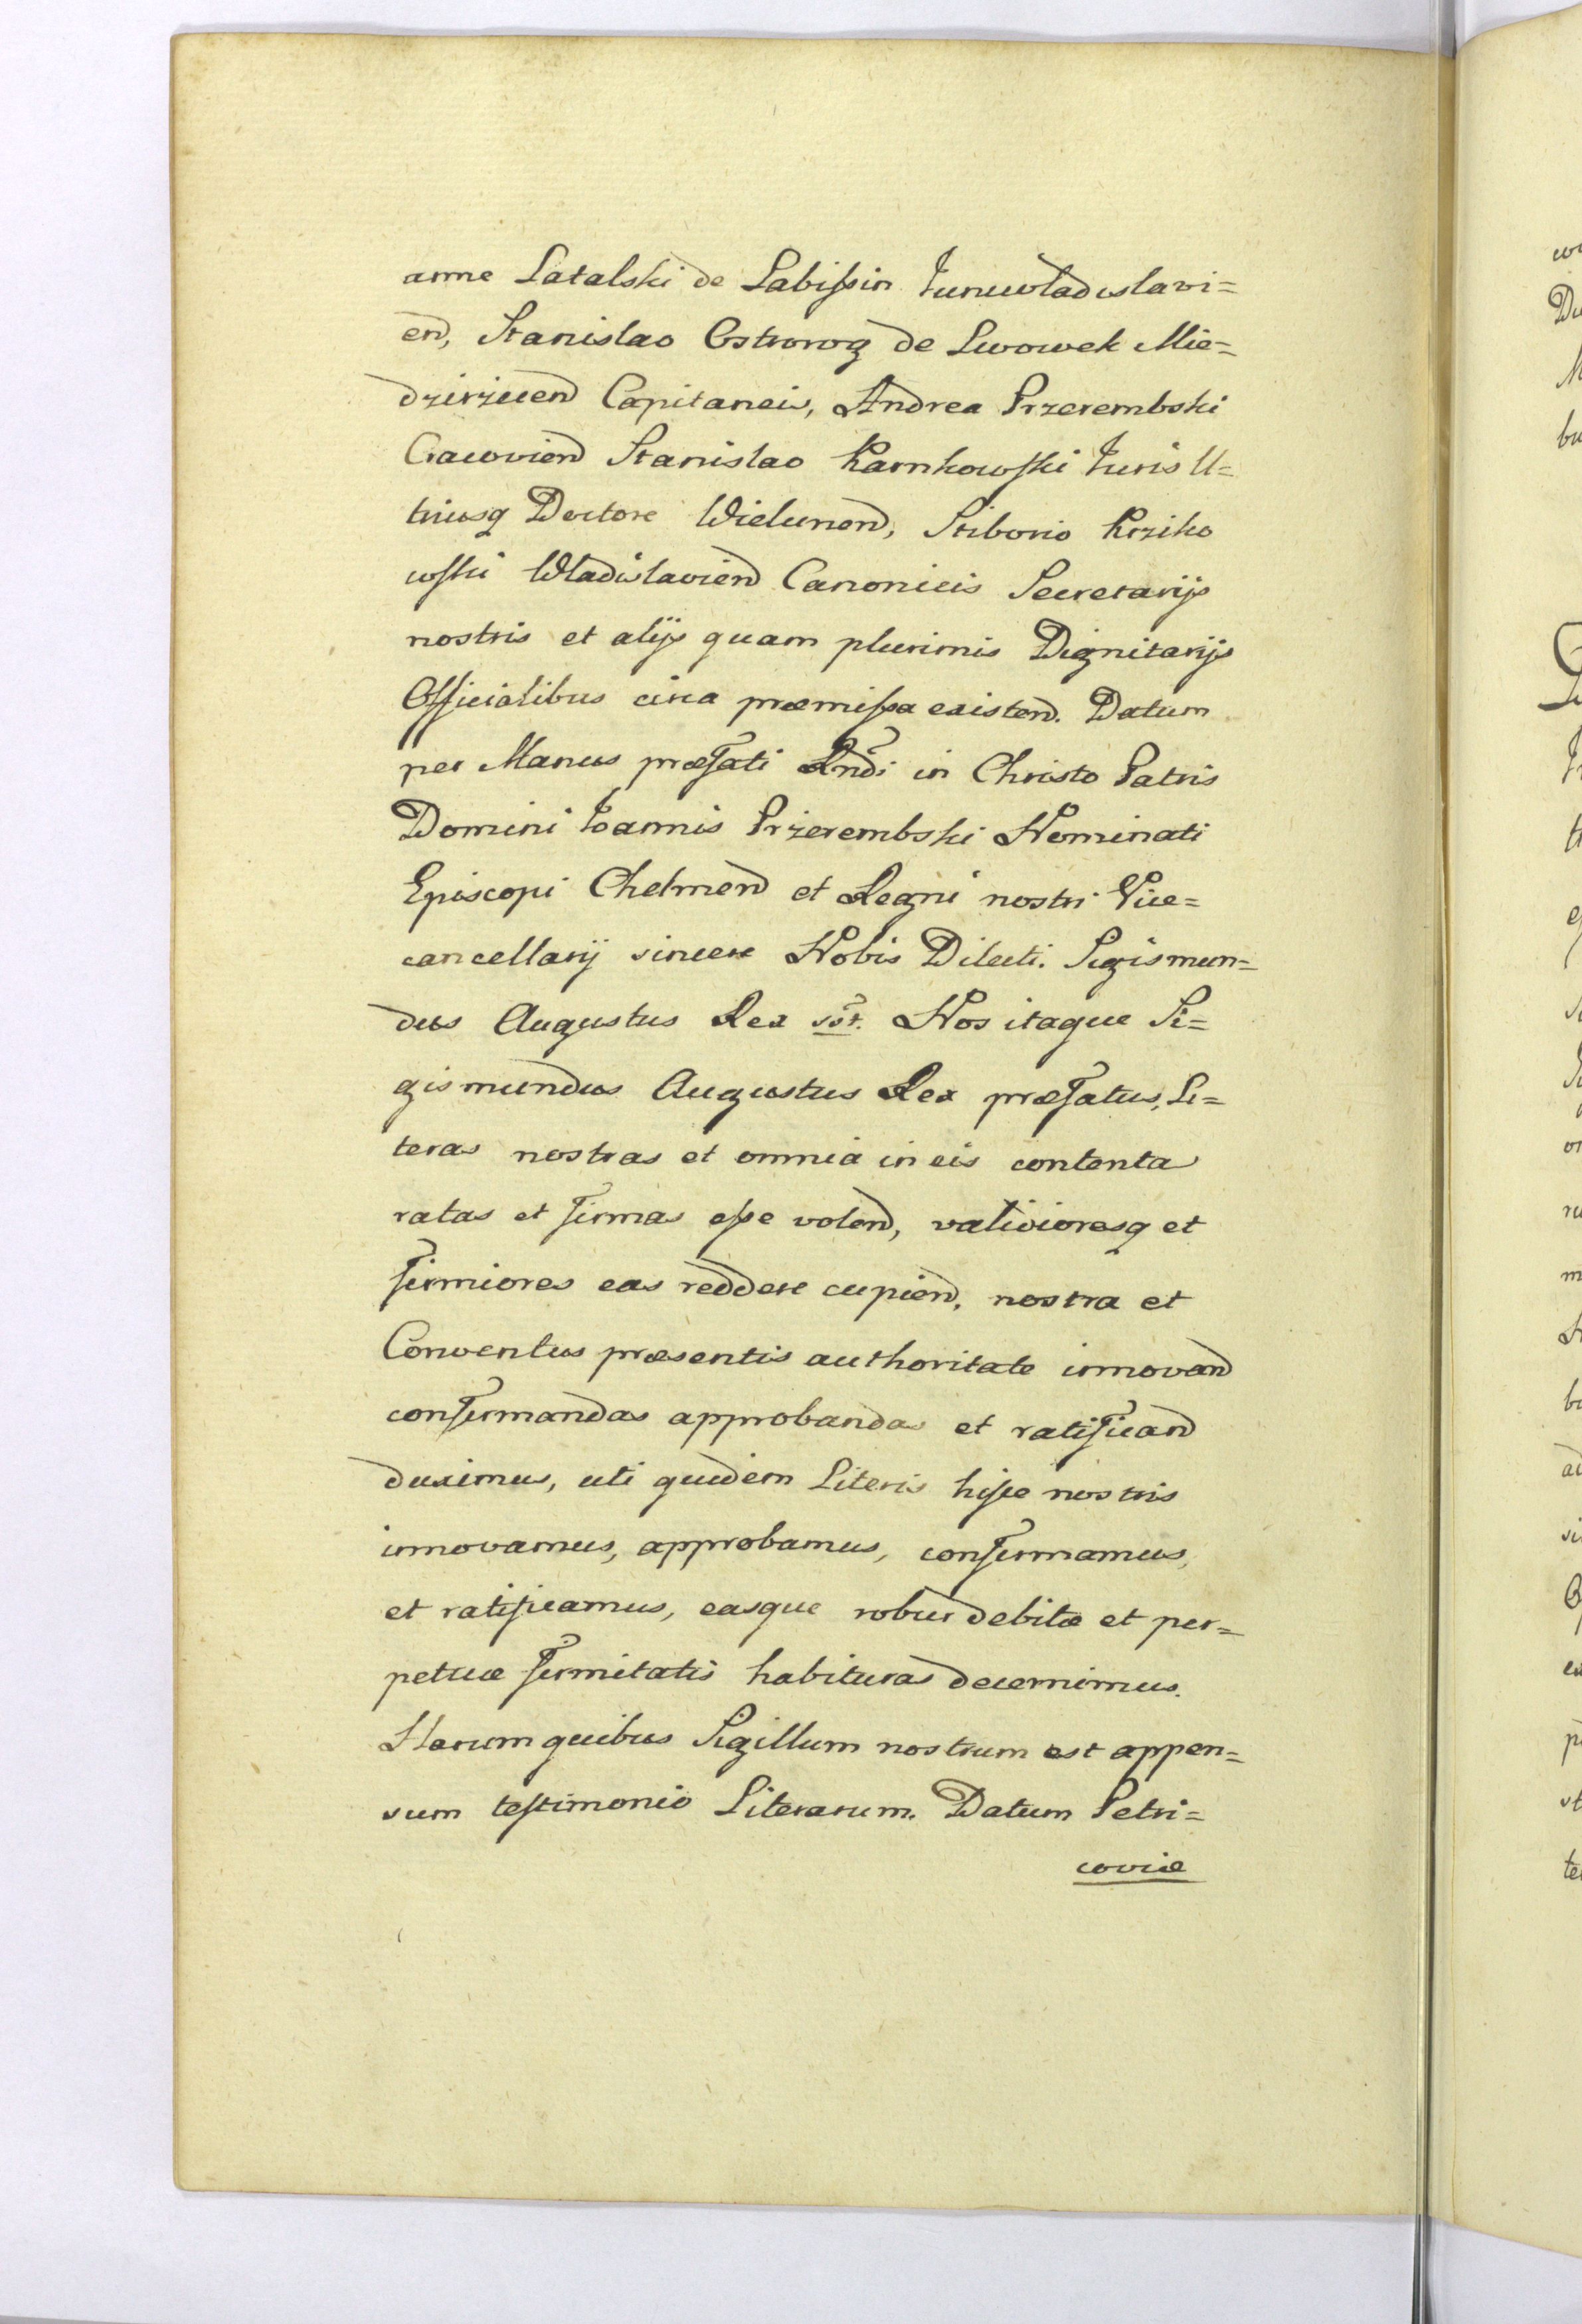 anne Latalski de Labißin Juniwladislavi=
end, Stanislao Ostrorog de Lwowek Mie=
dzirzicend Capitaneis, Andrea Przerembski
Cracoviend Stanislao Karnkowski Juris U=
triusq Doctore Wielunend, Stiborio Krziko
wski Wladislaviend Canonicis Secretarijs
nostris et alijs quam plurimis Dignitarijs
Officialibus circa præmißa existend. Datum
per Manus præfati Rndi in Christo Patris
Domini Joannis Przerembski Nominati
Episcopi Chelmend et Regni nostri Vice=
cancellarij sincere Nobis Dilecti. Sigismun=
dus Augustus Rex sst. Nos itaque Si=
gismundus Augustus Rex præfatus, Li=
teras nostras et omnia in eis contenta
ratas et firmas eße volend, validioresq et
firmiores eas reddere cupiend, nostra et
Conventus præsentis authoritate innovand
confirmandas approbandas et ratificand
duximus, uti quidem Literis hisce nostris
innovamus, approbamus, confirmamus,
et ratificamus, easque robur debitæ et per=
petuæ firmitatis habituras decernimus.
Harum quibus Sigillum nostrum est appen=
sum testimonio Literarum. Datum Petri=
coviæ